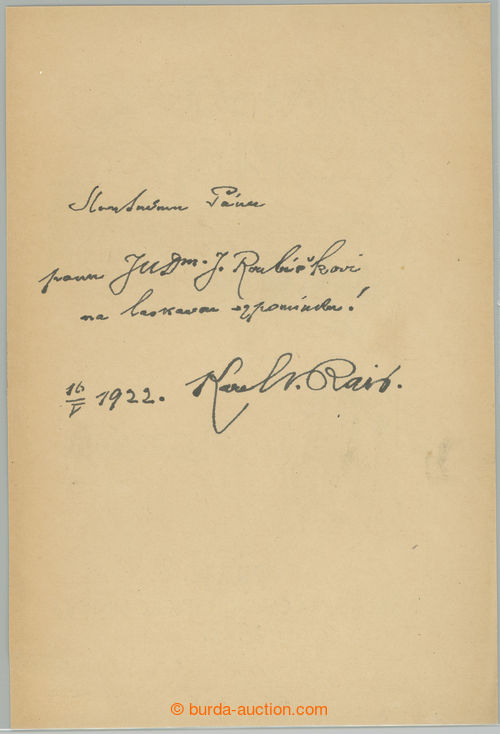 Slovutnému Pánu
panu JUDru. J. Roubíčkovi
na laskavou vzpomínku!
16/V 1922. Karel V. Rais.
© burda-auction.com